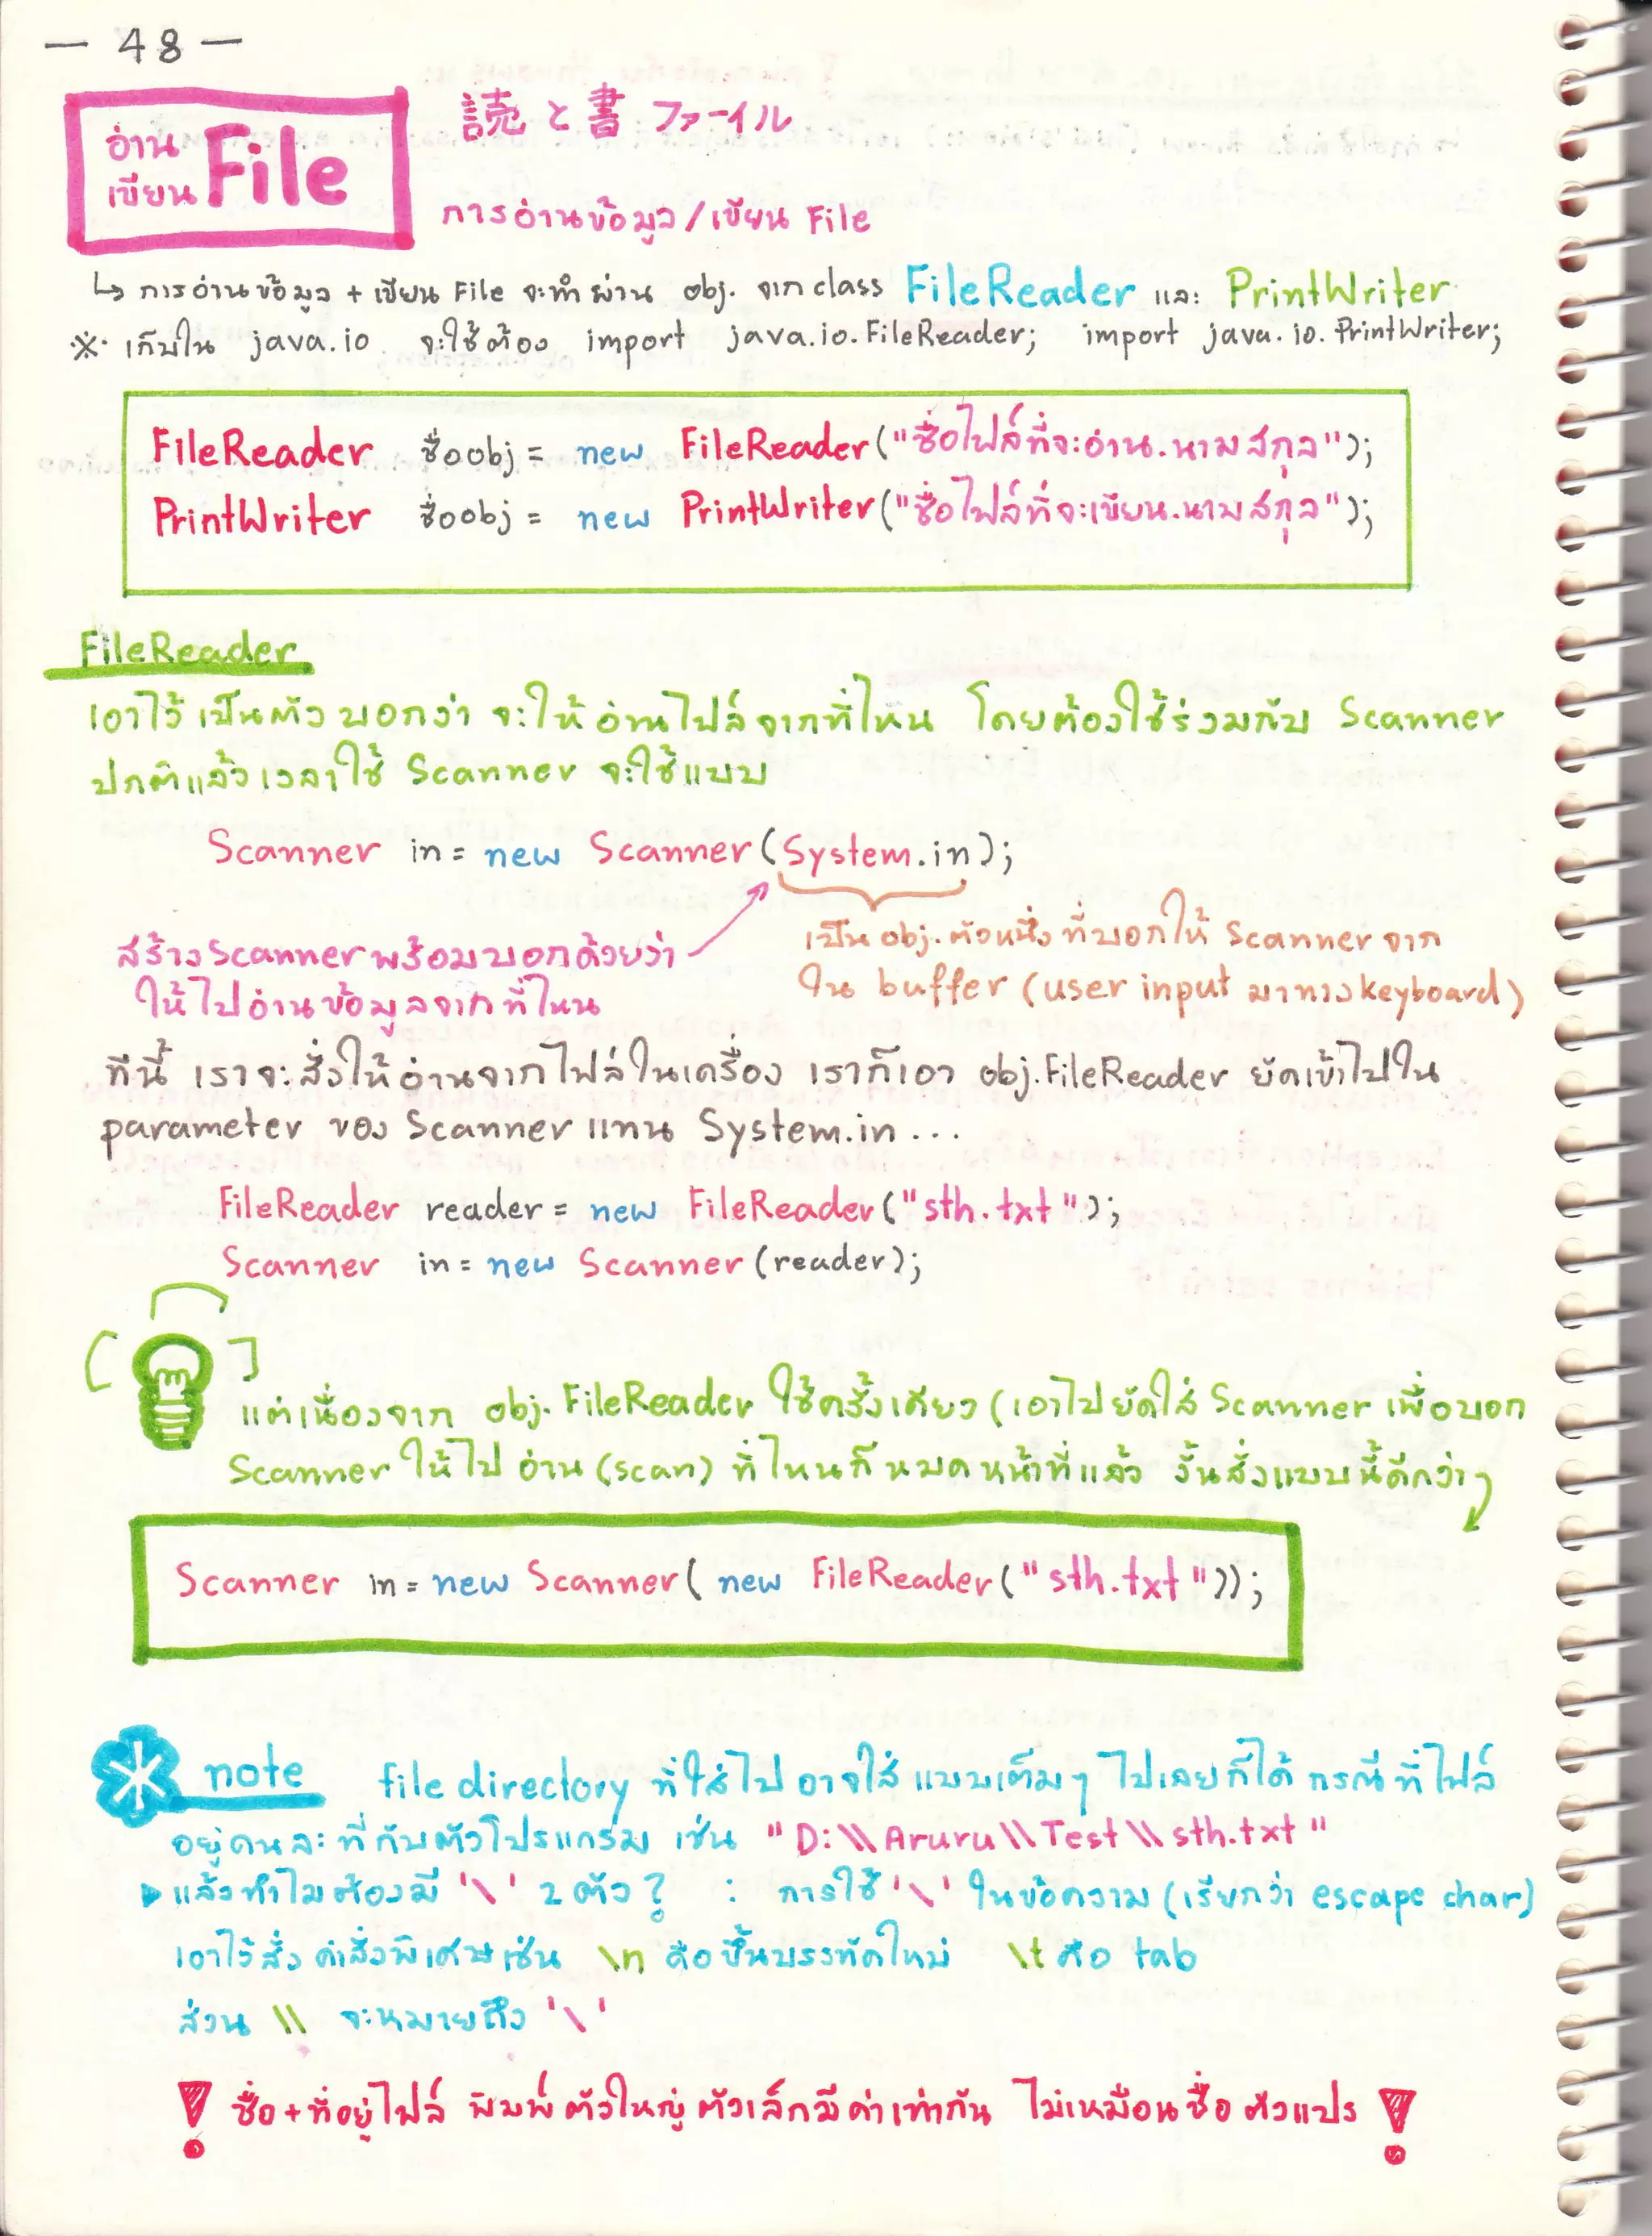 — 48 —
อ่าน
เขียน File
読と書ファイル
การอ่านข้อมูล/เขียน File
↳ การอ่านข้อมูล + เขียน File จะทำผ่าน obj. จาก class FileReader และ PrintWriter
※ เก็บใน java.io จะใช้ต้อง import java.io.FileReader; import java.io.PrintWriter;
FileReader ชื่อobj = new FileReader("ชื่อไฟล์ที่จะอ่าน.นามสกุล");
PrintWriter ชื่อobj = new PrintWriter("ชื่อไฟล์ที่จะเขียน.นามสกุล");
FileReader
เอาไว้เป็นตัวบอกว่า จะให้อ่านไฟล์จากที่ไหน โดยต้องใช้ร่วมกับ Scanner
ปกติแล้วเวลาใช้ Scanner จะใช้แบบ
Scanner in = new Scanner(System.in);
สร้างScannerพร้อมบอกด้วยว่า
ให้ไปอ่านข้อมูลจากที่ไหน
เป็น obj. ตัวหนึ่ง ที่บอกให้ Scanner จาก
ใน buffer (user input มาทาง keyboard)
ทีนี้ เราจะสั่งให้อ่านจากไฟล์ในเครื่อง เราก็เอา obj.FileReader ยัดเข้าไปใน
parameter ของ Scanner แทน System.in ...
FileReader reader = new FileReader("sth.txt");
Scanner in = new Scanner(reader);
แต่เนื่องจาก obj. FileReader ใช้ครั้งเดียว (เอาไปยัดใส่ Scanner เพื่อบอก
Scanner ให้ไป อ่าน (scan) ที่ไหนก็หมดหน้าที่แล้ว งั้นสั่งแบบนี้ดีกว่า
Scanner in = new Scanner( new FileReader("sth.txt"));
note file directory ที่ใส่ไป อาจใส่ แบบเต็มๆ ไปเลยก็ได้ กรณีที่ไฟล์
อยู่คนละที่กับตัวโปรแกรม เช่น "D:\\Aruru\\Test\\sth.txt"
▶ แล้วทำไมต้องมี '\' 2 ตัว? : การใช้ '\' ในข้อความ (เรียกว่า escape char)
เอาไว้สั่ง คำสั่งพิเศษเช่น \n คือขึ้นบรรทัดใหม่ \t คือ tab
ส่วน \\ จะหมายถึง '\'
! ชื่อ+ที่อยู่ไฟล์ พิมพ์ตัวใหญ่ตัวเล็กมีค่าเท่ากัน ไม่เหมือนชื่อตัวแปร !